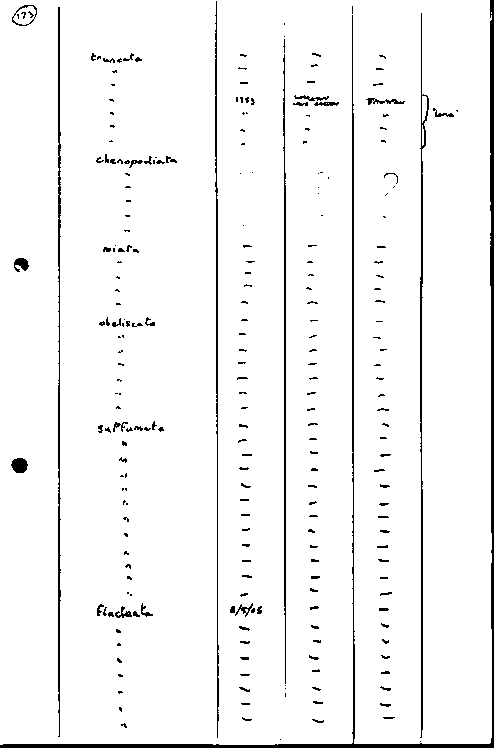 173
truncata - - -
" - - -
" - - -
" 1953
" " - -
" - - -
" - - -
chenopodiata
" ? ?
"
"
"
miata - - -
" - - -
" - - -
" - - -
" - - -
obeliscata - - -
" - - -
" - - -
" - - -
" - - -
" - - -
" - - -
suffumata - - -
" - - -
" - - -
" - - -
" - - -
" - - -
" - - -
" - - -
" - - -
" - - -
" - - -
" - - -
fluctuata 8/5/05 - -
" - - -
" - - -
" - - -
" - - -
" - - -
" - - -
" - - -